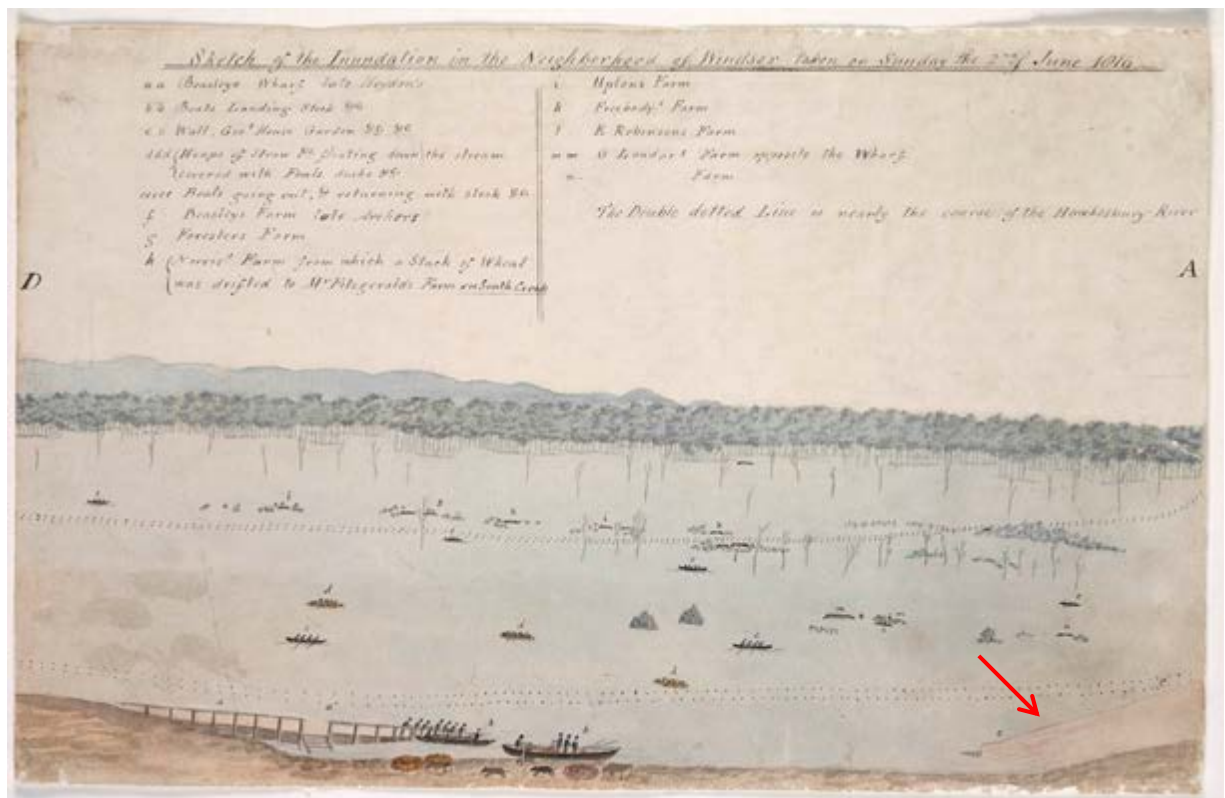 Sketch of the Inundation in the Neighborhood of Windsor taken on Sunday the 2nd of June 1816
a a Beasleys Wharf late Hoydon's
b b Boats Landing Stock &c
c c Wall, Govt House Garden &c &c
d d d Heaps of Straw &c floating down the stream
covered with Fouls, ducks &c.
eeee Boats going out, & returning with stock &c
f Beasleys Farm late Archers
g Foresters Farm
h Norris's Farm from which a Stack of Wheat
was drifted to Mr Fitzgeralds Farm on South Creek
i Uptons Farm
k Peebodys Farm
l R Robinsons Farm
m m Farm opposite the Wharf
n. Farm
The Double dotted Line is nearly the course of the Hawkesbury River
D
A